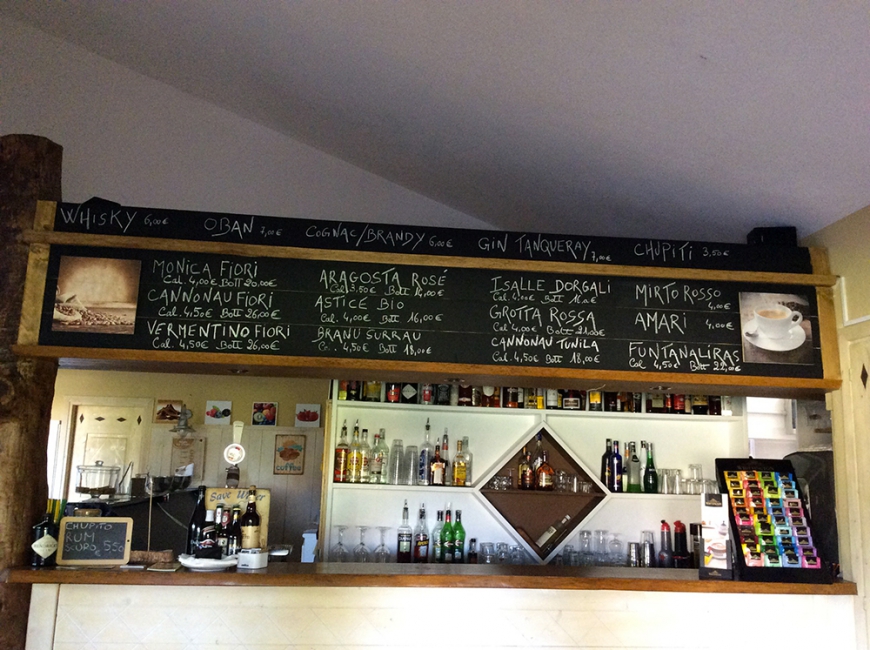 WHISKY 6,00€ OBAN 7,00€ COGNAC/BRANDY 6,00€ GIN TANQUERAY 7,00€ CHUPITI 3,50€
MONICA FIORI
Cal. 4,00€ Bott 20,00€
CANNONAU FIORI
Cal. 4,50€ Bott 26,00€
VERMENTINO FIORI
Cal. 4,50€ Bott 26,00€
ARAGOSTA ROSÉ
Cal 3,50€ Bott 14,00€
ASTICE BIO
Cal. 4,00€ Bott 16,00€
BRANU SURRAU
4,50€ Bott 18,00€
ISALLE DORGALI
Cal. 4,00€ Bott
GROTTA ROSSA
Cal. 4,00€ Bott
CANNONAU TUNILA
Cal. 4,50€ Bott 18,00€
MIRTO ROSSO
4,00€
AMARI 4,00€
FUNTANALIRAS
Cal 4,50€ Bott 22,00€
Save Water
coffee
CHUPITO
RUM
5,50